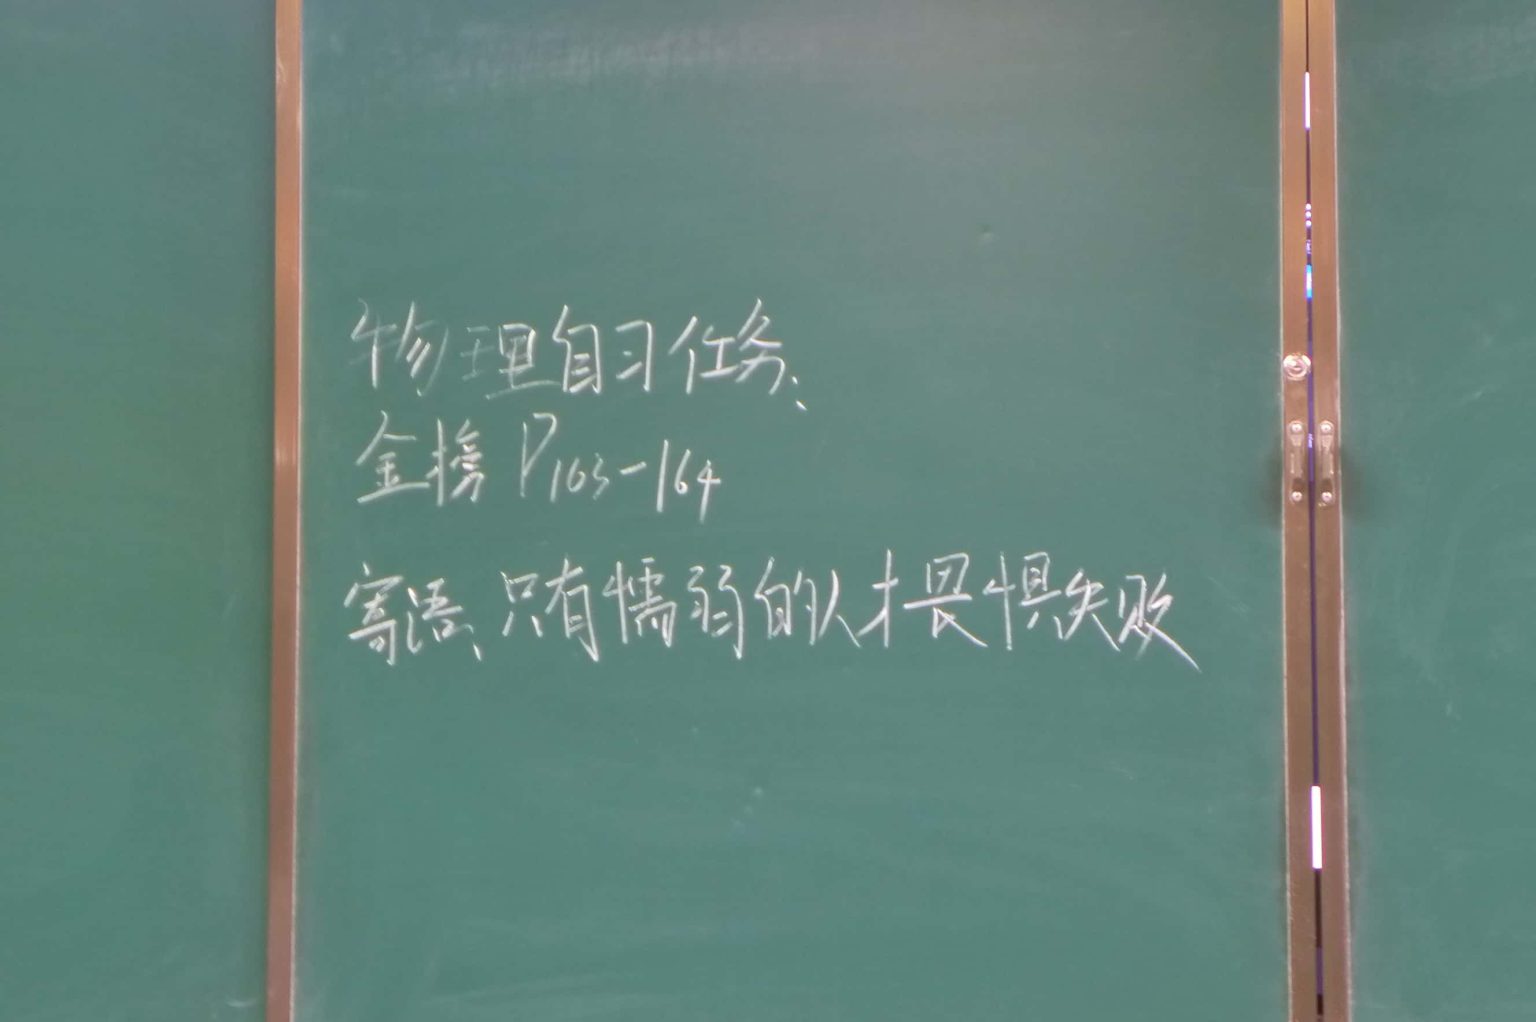 物理自习任务:
金榜 P163-164
寄语、只有懦弱的人才畏惧失败